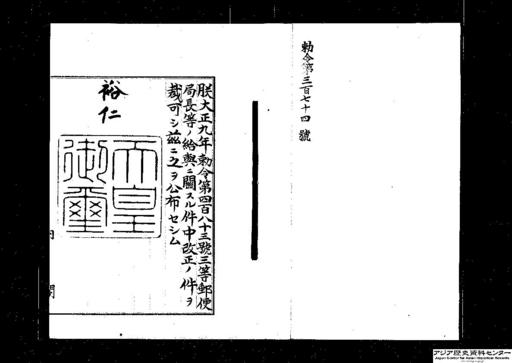 勅令第三百七十四號
朕大正九年勅令第四百八十三號三等郵便
局長等ノ給與ニ關スル件中改正ノ件ヲ
裁可シ茲ニ之ヲ公布セシム
裕仁
天皇
御璽
内閣
アジア歴史資料センター
Japan Center for Asian Historical Records